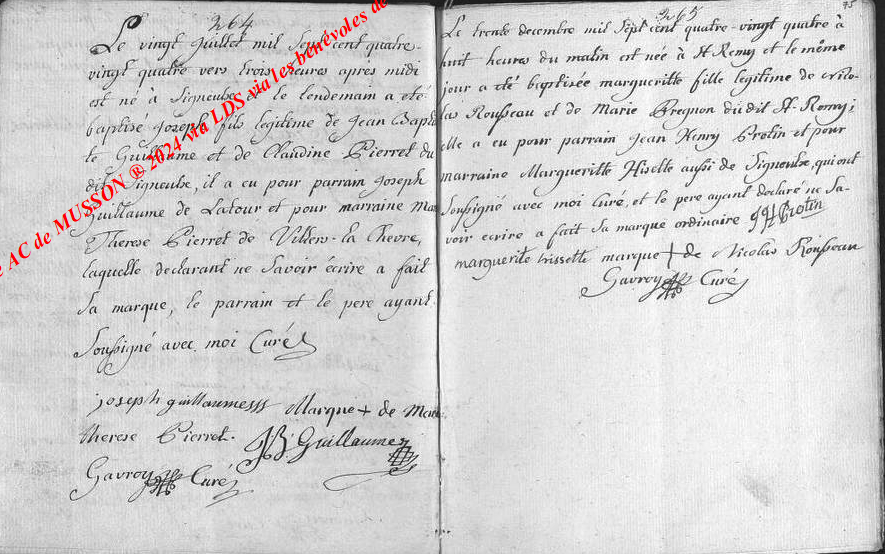 264
Le vingt Juillet mil Sept cent quatre-
vingt quatre vers trois heures après midi
est né à Signeulx et le lendemain a eté
baptisé Joseph fils legitime de Jean Bapti
te Guillaume et de Claudine Pierret du
dit Signeulx, il a eu pour parrain Joseph
Guillaume de Latour et pour marraine Ma
Therese Pierret de Villers-la Chevre,
laquelle declarant ne Savoir écrire a fait
Sa marque, le parrain et le pere ayant
Soussigné avec moi Curé
joseph guillaume Marque + de Marie
therese Pierret. JB. Guillaume
Gavroy Curé
265
75
Le trente decembre mil Sept cent quatre-vingt quatre à
huit heures du matin est née à St Remy et le même
jour a eté baptisée margueritte fille legitime de Nico-
las Rousseau et de Marie Bregnon dudit St. Remy;
elle a eu pour parrain Jean Henry Protin et pour
marraine Margueritte Hisette aussi de Signeulx, qui ont
Soussigné avec moi Curé, et le pere ayant declaré ne Sa-
voir ecrire a fait Sa marque ordinaire JH Protin
marguerite hissette marque + de Nicolas Rousseau
Gavroy Curé
AC de MUSSON ® 2024 via LDS via les bénévoles de